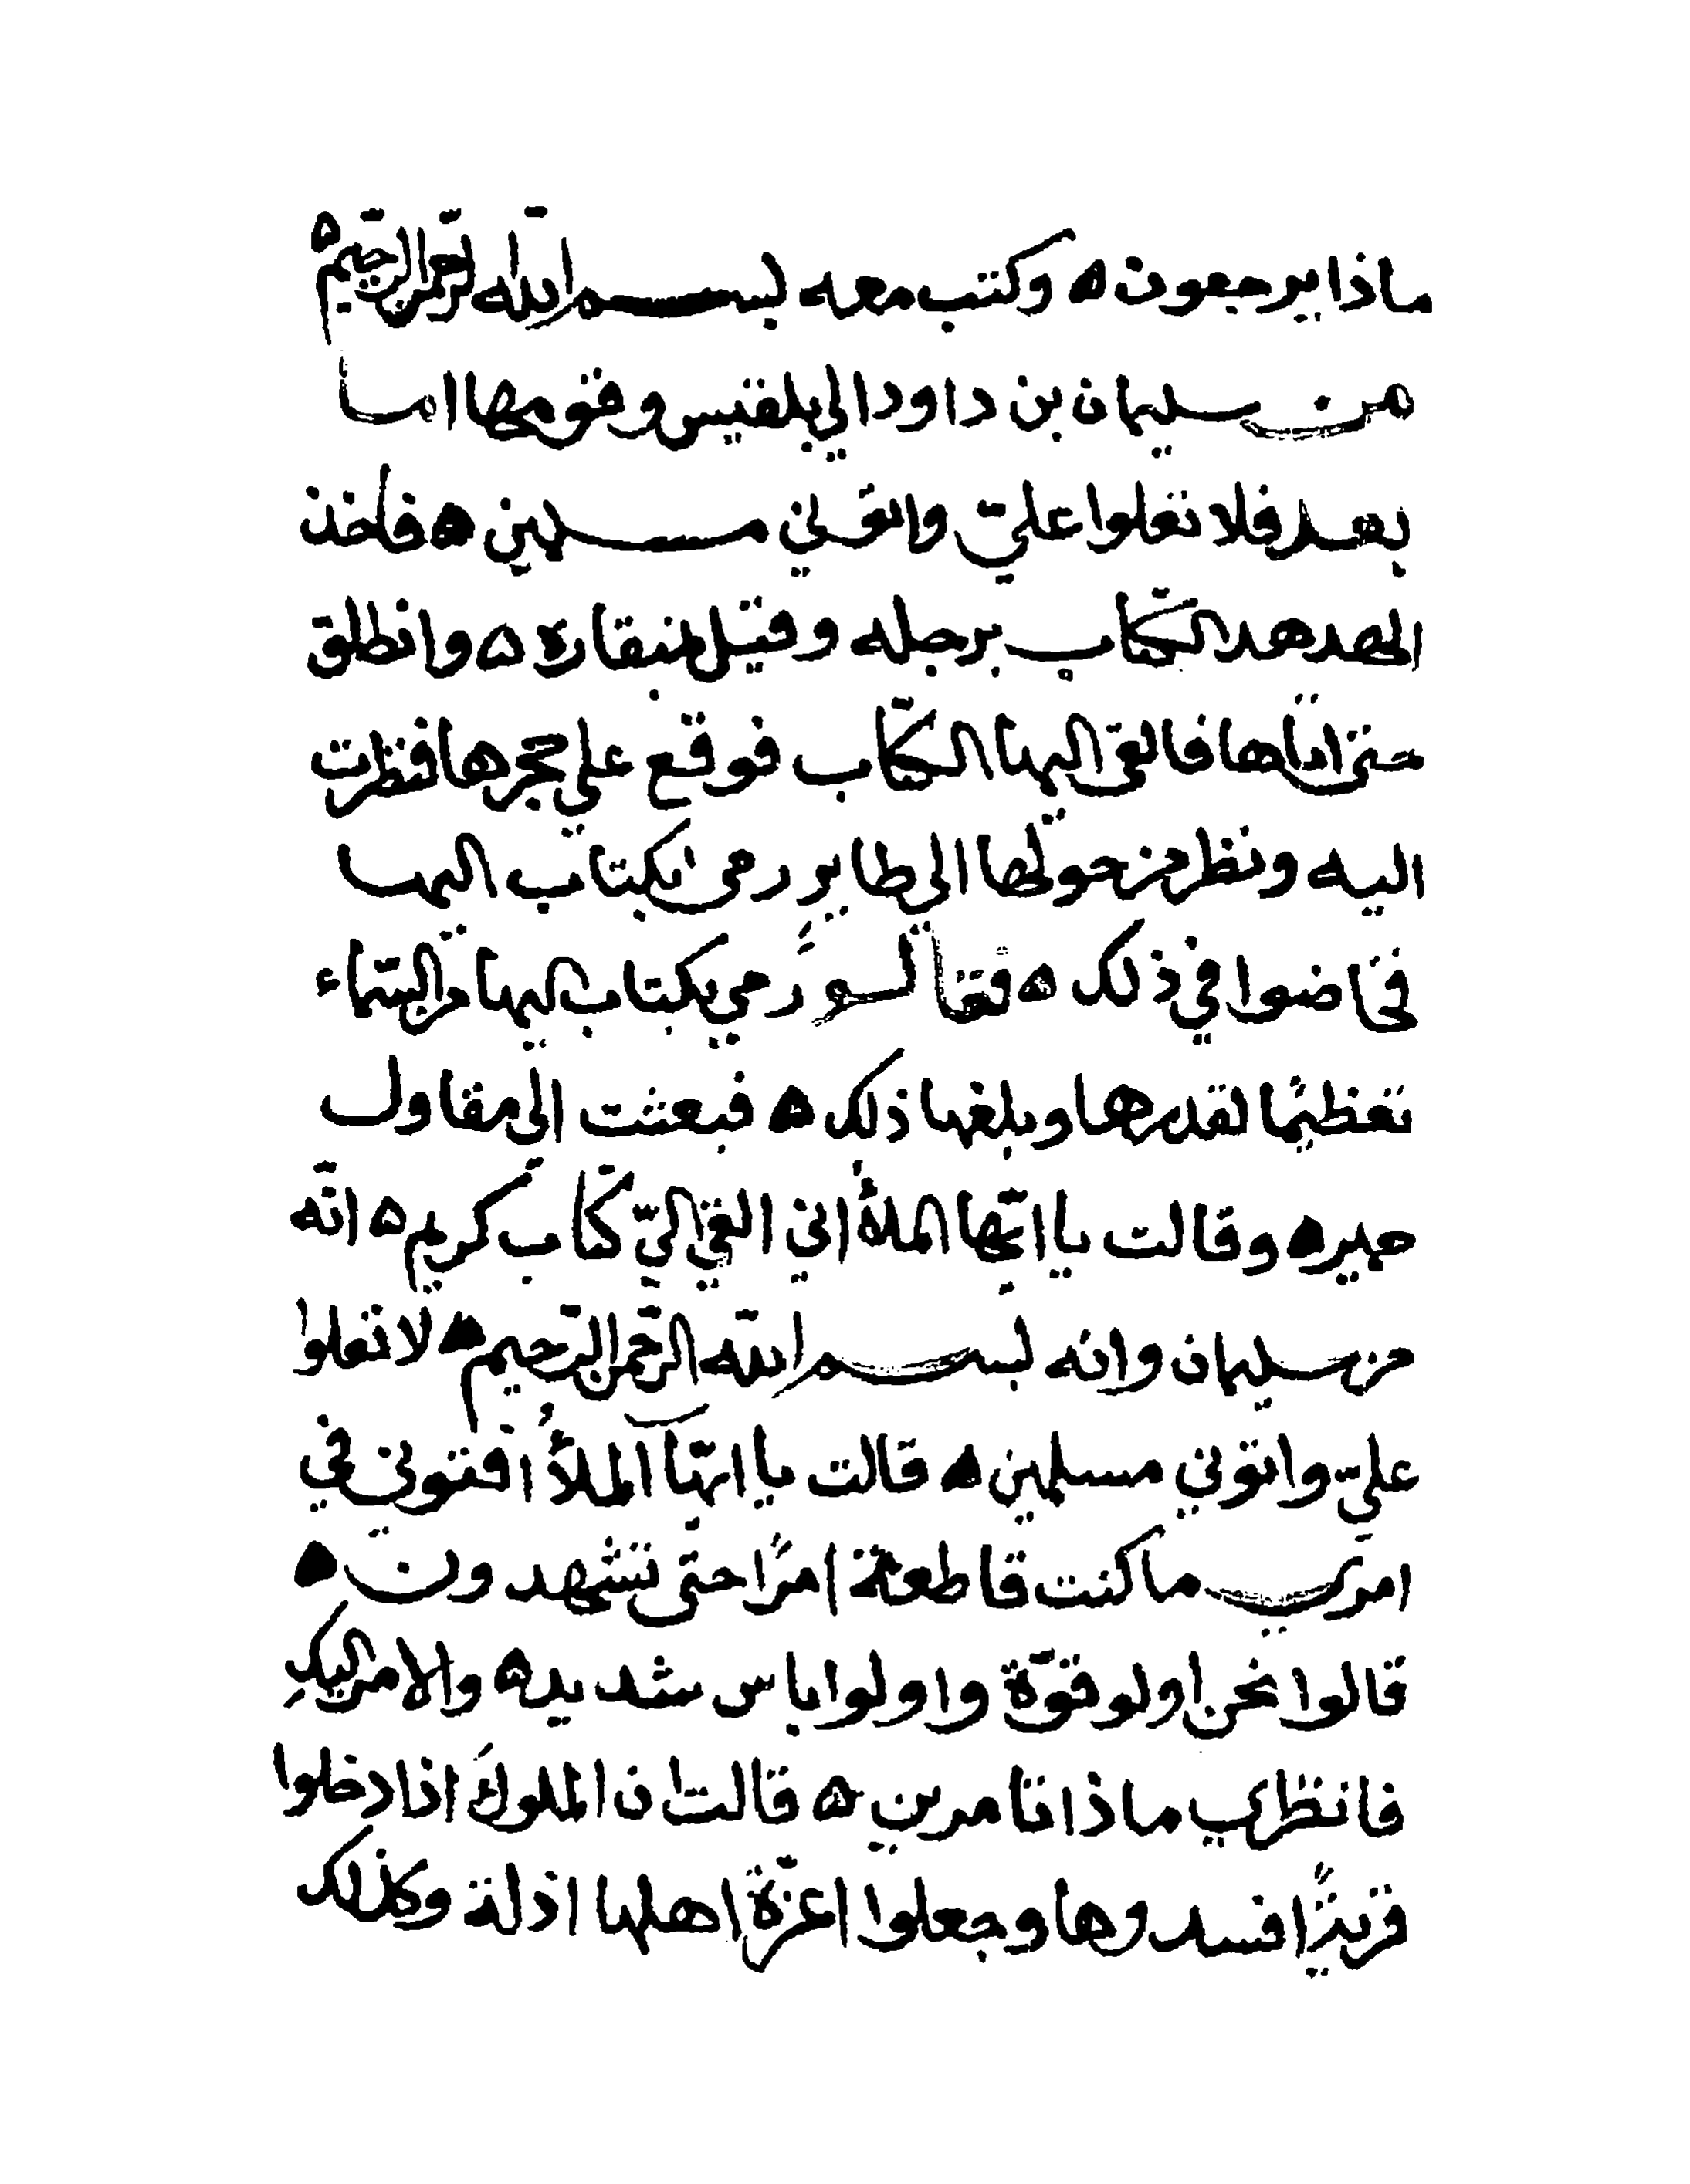 ماذا يرجعون ۵ وكتب معه بسم الله الرحمن الرحيم ۵
من سليمان بن داود الى بلقيس وقومها اما
بعد فلا تعلوا عليّ واتوني مسلمين ۵ فاخذ
الهدهد الكتاب برجله وقيل بمنقاره ۵ وانطلق
حتى اتاها فالقى اليها الكتاب فوقع على حجرها فنظرت
اليه ونظر من حولها الى طاير رمى بكتاب اليها
فخاضوا في ذلك ۵ فقالوا رمي بكتاب اليها من السماء
تعظيمًا لقدرها وبلغها ذلك ۵ فبعثت الى مقاول
حمير ۵ وقالت يا ايّها الملأ اني القي اليّ كتاب كريم ۵ انّه
من سليمان وانه بسم الله الرحمن الرحيم ۵ لا تعلوا
عليّ واتوني مسلمين ۵ قالت يا ايّها الملأُ افتوني في
امري ما كنت قاطعة امرًا حتى تشهدون ۵
قالوا نحن اولو قوّة واولوا باس شديد ۵ والامر اليكِ
فانظري ماذا تامرين ۵ قالت ان الملوكَ اذا دخلوا
قريةً افسدوها وجعلوا اعزّة اهلها اذلة وكذلك